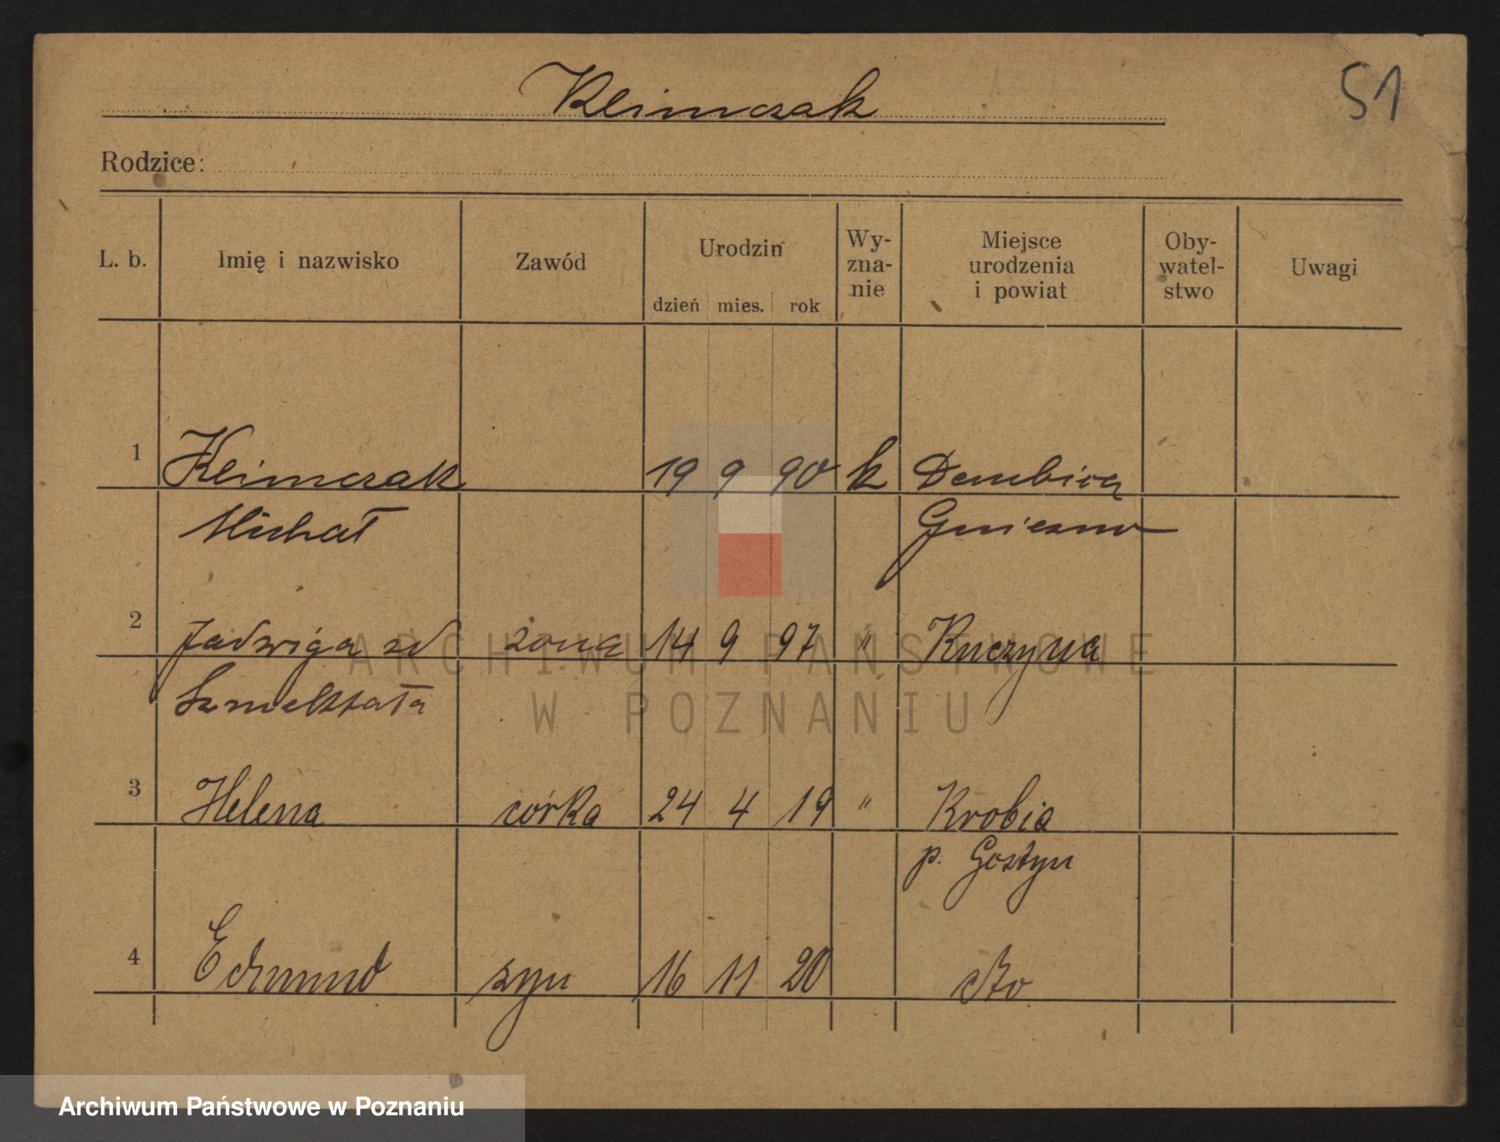 Klimczak
51
Rodzice:
L. b. Imię i nazwisko Zawód Urodzin dzień mies. rok Wy-zna-nie Miejsce urodzenia i powiat Oby-watel-stwo Uwagi
1 Klimczak 19 9 90 k Dembica
Michał Gniezno
2 Jadwiga zd żona 14 9 97 " Kuczyna
Szmelktała
3 Helena córka 24 4 19 " Krobia
p. Gostyn
4 Edmund syn 16 11 20 dto
ARCHIWUM PAŃSTWOWE
W POZNANIU
Archiwum Państwowe w Poznaniu